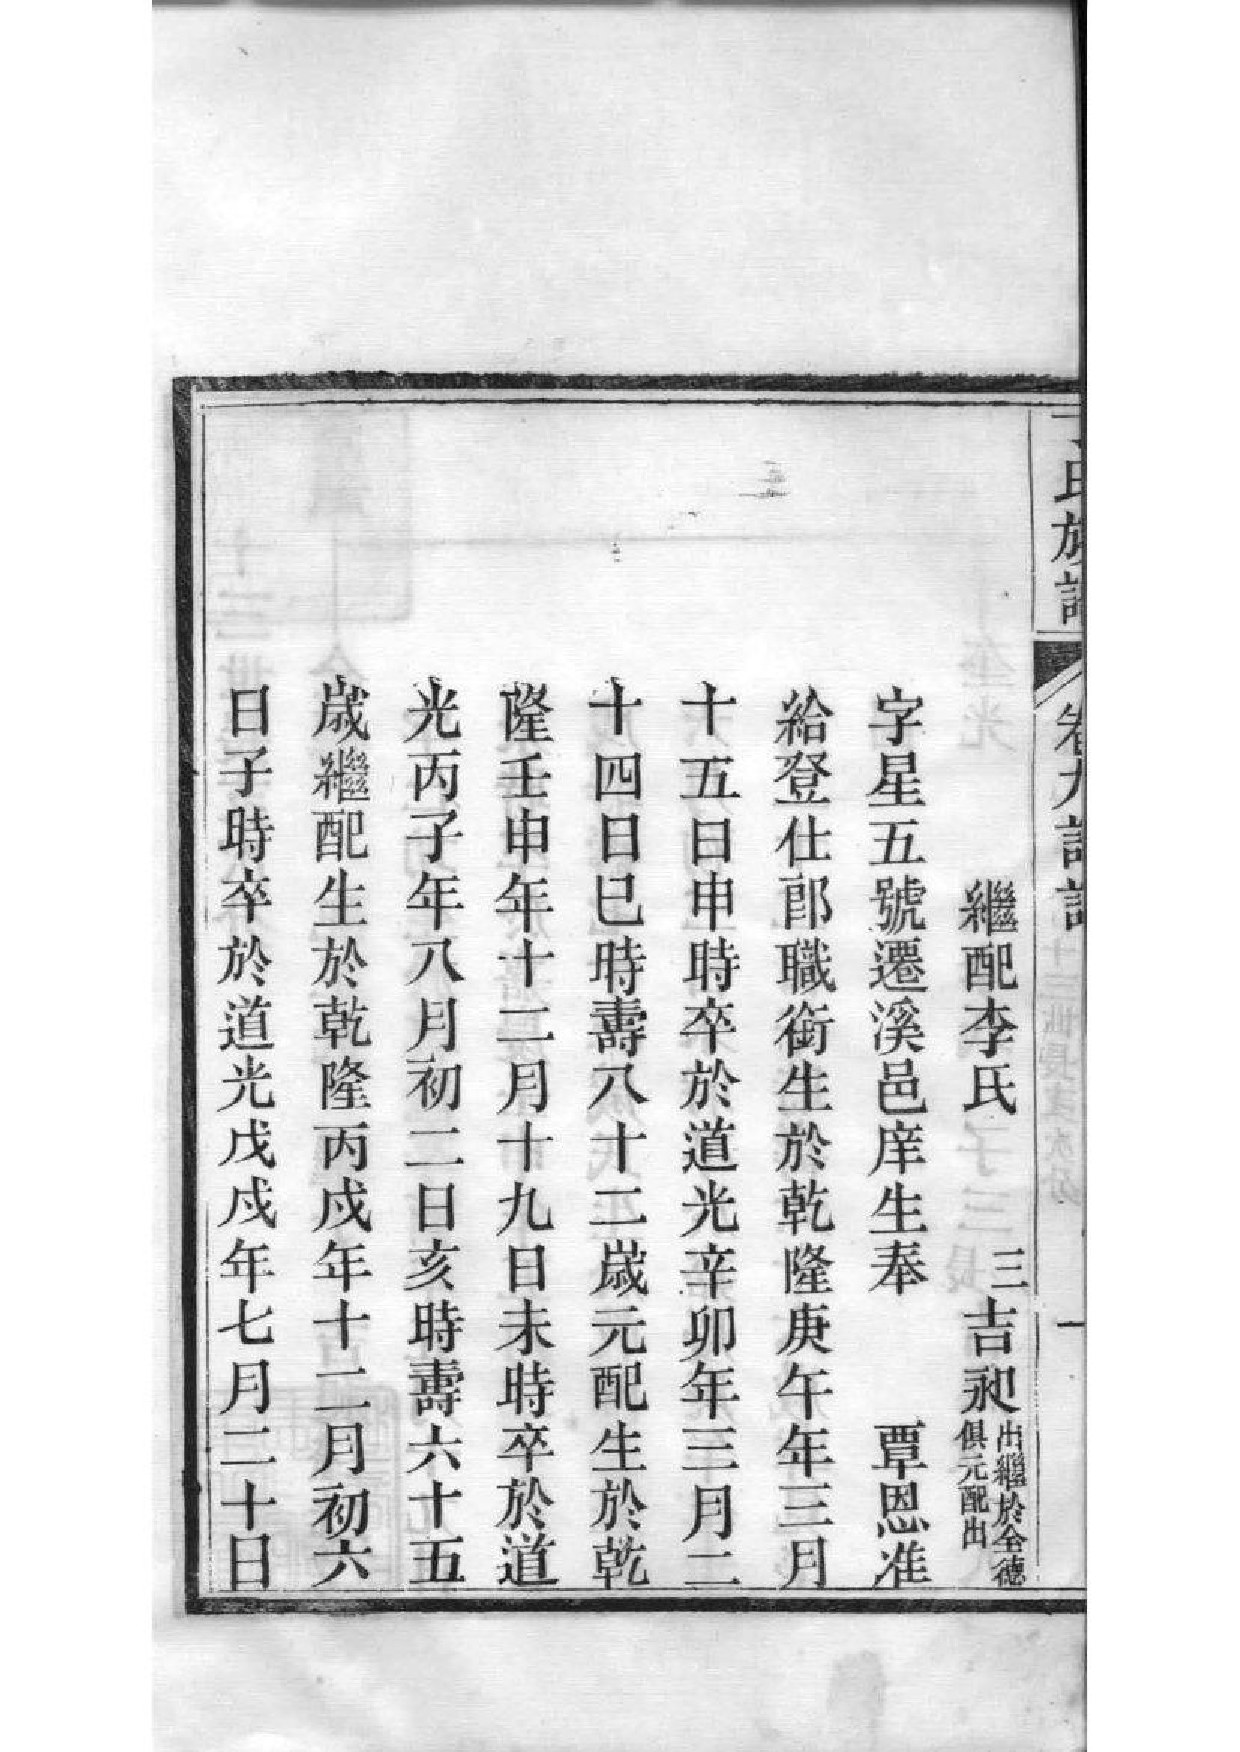 氏族譜
卷九
一
繼配李氏 三吉昶 出繼於全德 俱元配出
字星五號遷溪邑庠生奉 覃恩准
給登仕郎職銜生於乾隆庚午年三月
十五日申時卒於道光辛卯年三月二
十四日巳時壽八十二歲元配生於乾
隆壬申年十二月十九日未時卒於道
光丙子年八月初二日亥時壽六十五
歲繼配生於乾隆丙戍年十二月初六
日子時卒於道光戊戍年七月二十日